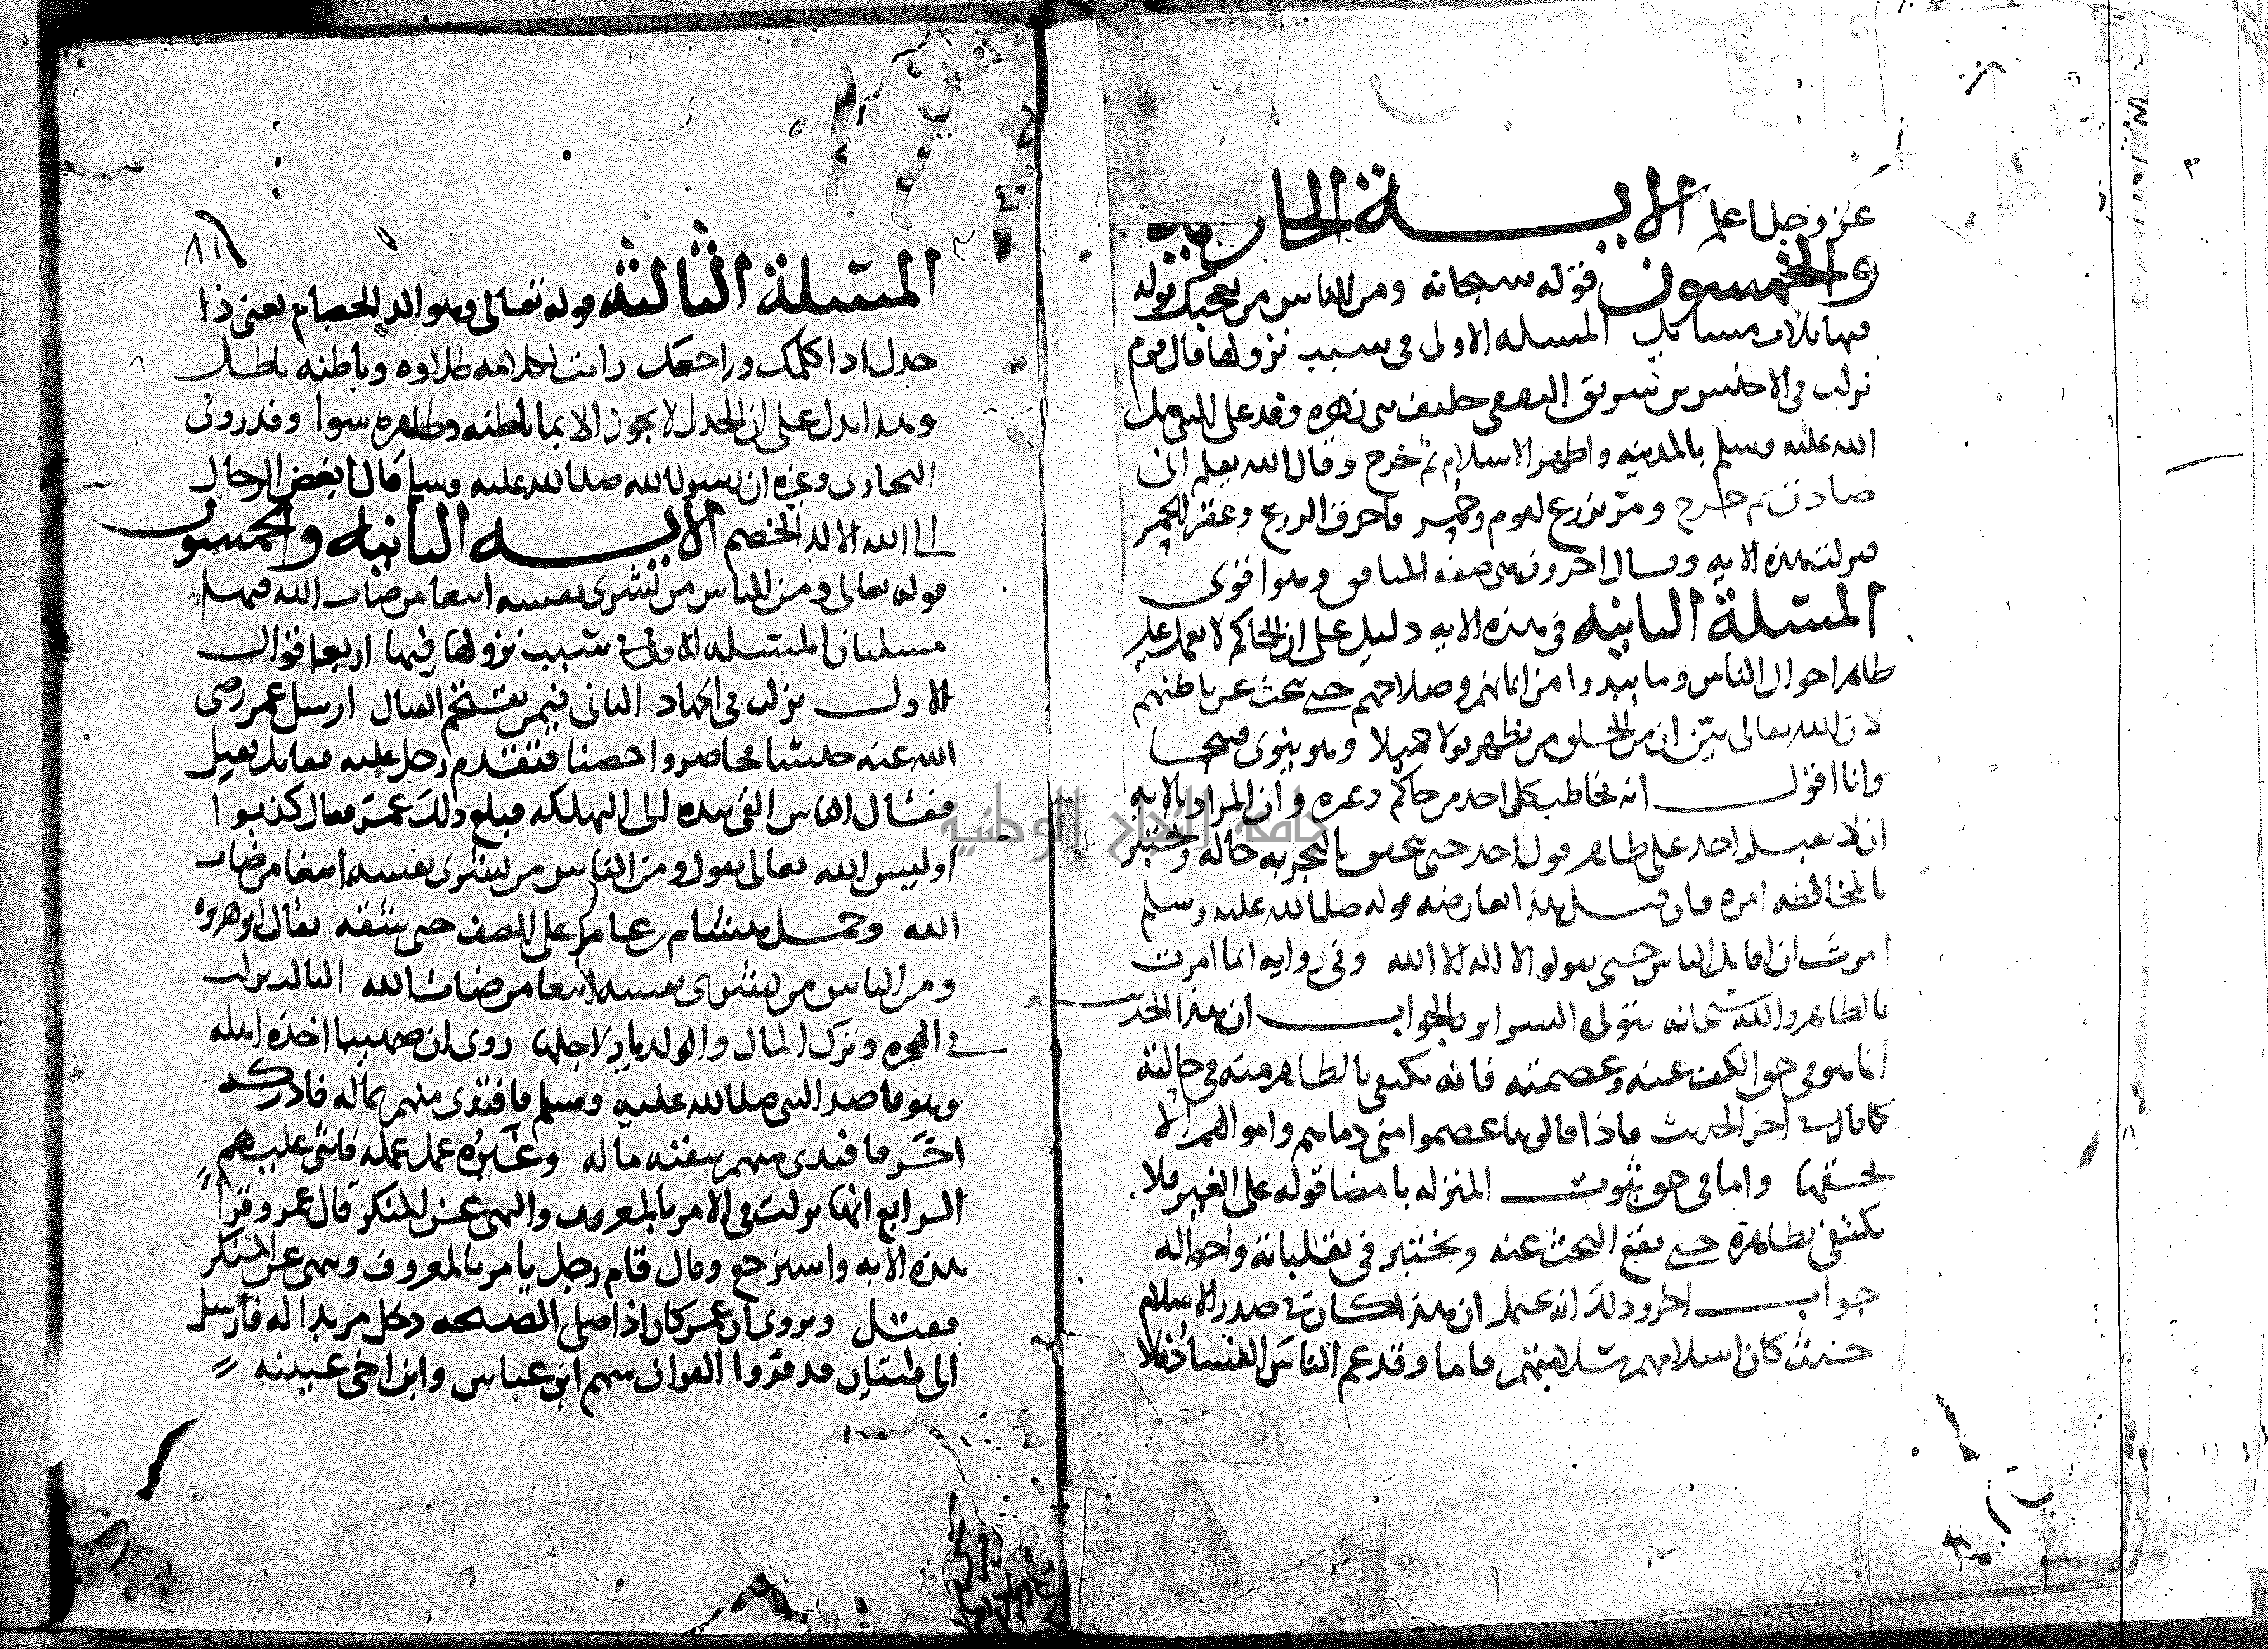 عز وجل اعلم الايـــة الحادية
والخمسون قوله سبحانه ومن الناس من يعجبك قوله
فيها ثلاث مسايل المسلة الاولى في سبب نزولها قال قوم
نزلت في الاخنس بن شريق الثقفي حليف بني زهره وفد على النبي صلى
الله عليه وسلم بالمدينه واظهر الاسلام ثم خرج وقال الله يعلم اني
صادق ثم خرج ومر بزرع لقوم وحمر فاحرق الزرع وعقر الحمر
فنزلت هذه الايه وقال اخرون هي صفه المنافق وهو اقوى
المسئلة الثانيه في هذه الايه دليل على ان الحاكم لا يعمل على
ظاهر احوال الناس وما يبدوا من ايمانهم وصلاحهم حتى يبحث عن باطنهم
لان الله تعالى بين ان من الخلق من يظهر قولا جميلا وهو ينوى قبيحا
وانا اقول انه يخاطب كل احد من حاكم وغيره وان المراد بالايه
ان لا يقبل احد على ظاهر قول احد حتى يتحقق بالتجربه حاله ويختبر
بالمخالطه امره فان قيل هذا يعارضه قوله صلى الله عليه وسلم
امرت ان اقاتل الناس حتى يقولوا لا اله الا الله وفي روايه انما امرت
بالظاهر والله سبحانه يتولى السراير فالجواب ان هذا الحديث
انما هو في حق الكف عنه وعصمته فانه يكتفى بالظاهر منه في حالته
كما قال في اخر الحديث فاذا قالوها عصموا مني دماهم واموالهم الا
بحقها واما في حق ثبوت المنزله بامضا قوله على الغير فلا
يكتفى بظاهره حتى يقع البحث عنه ويختبر في تقلباته واحواله
جواب اخر وذلك انه يحتمل ان هذا كان في صدر الاسلام
حيث كان اسلامهم سلامتهم فاما وقد عم الناس الفساد فلا
المسئلة الثالثه قوله تعالى وهو الد الخصام يعني ذا
جدل اذا كلمك وراجعك رايت لكلامه طلاوه وباطنه باطل
وهذا يدل على ان الجدل لا يجوز الا بما باطنه وظاهره سوا وقد روى
البخارى وغيره ان رسول الله صلى الله عليه وسلم قال ابغض الرجال
الى الله الالد الخصم الايـــه الثانيه والخمسون
قوله تعالى ومن الناس من يشرى نفسه ابتغا مرضات الله فيها
مسلتان المسئله الاولى في سبب نزولها فيها اربعة اقوال
الاول نزلت في الجهاد الثاني فيمن يقتحم القتال ارسل عمر رضى
الله عنه جيشا فحاصروا حصنا فتقدم رجل عليه فقاتل فقتل
فقال الناس القى بيده الى التهلكه فبلغ ذلك عمر فقال كذبوا
اوليس الله تعالى يقول ومن الناس من يشرى نفسه ابتغا مرضات
الله وحمل هشام بن عامر على الصف حتى شقه فقال ابو هريره
ومن الناس من يشرى نفسه ابتغا مرضات الله الثالث نزلت
في الهجره وترك المال والديار لاجلها روى ان صهيبا اخذه اهله
وهو قاصد النبي صلى الله عليه وسلم فافتدى منهم بماله فادركه
اخر فافتدى منهم ببقيه ماله وغيره عمل عمله فاثنى عليهم
الرابع انها نزلت في الامر بالمعروف والنهى عن المنكر قال عمر وقرا
هذه الايه واسترجع وقال قام رجل يامر بالمعروف وينهى عن المنكر
فقتل ويروى ان عمر كان اذا صلى الصبحه دخل مربدا له فارسل
الى فتيان قد قروا القران منهم ابن عباس وابن اخي عيينه